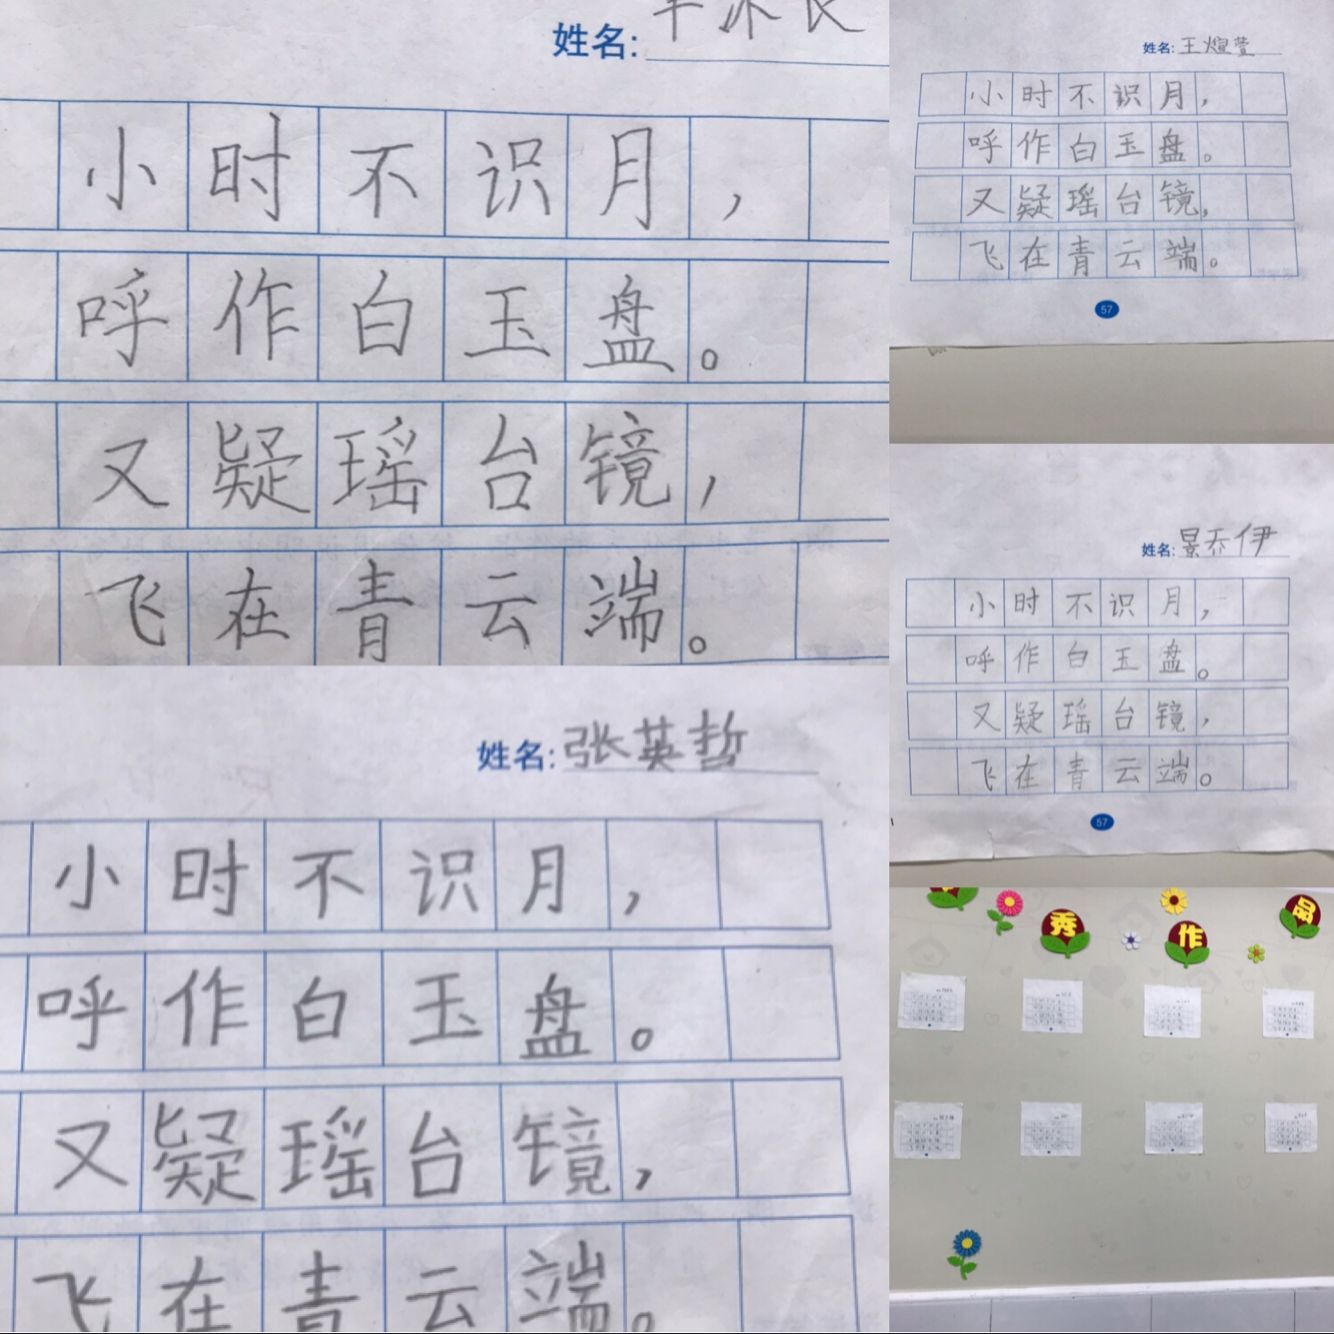 姓名:
小时不识月，
呼作白玉盘。
又疑瑶台镜，
飞在青云端。
姓名:王煊萱
小时不识月，
呼作白玉盘。
又疑瑶台镜，
飞在青云端。
57
姓名:张英哲
小时不识月，
呼作白玉盘。
又疑瑶台镜，
飞在青云端。
姓名:景乔伊
小时不识月，
呼作白玉盘。
又疑瑶台镜，
飞在青云端。
57
秀作品